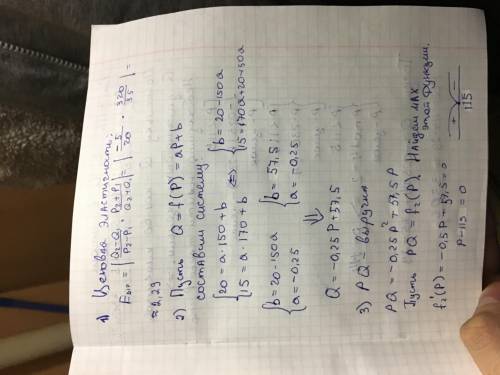 1) Ценовая эластичность:
Eвыр = | (Q₂-Q₁)/(P₂-P₁) · (P₂+P₁)/(Q₂+Q₁) | = | -5/20 · 320/35 | =
≈ 2,29
2) Пусть Q = f(P) = aP+b
составим систему
{ 20 = a·150+b { b = 20-150a
{ 15 = a·170+b <=> { 15 = 170a+20-150a
{ b = 20-150a { b = 57,5
{ a = -0,25 { a = -0,25
⇓
Q = -0,25P+57,5
3) PQ - выручка
PQ = -0,25P²+57,5P
Пусть PQ = f₂(P). Найдем max
этой функции.
f₂'(P) = -0,5P+57,5=0
P-115 = 0 + - 115